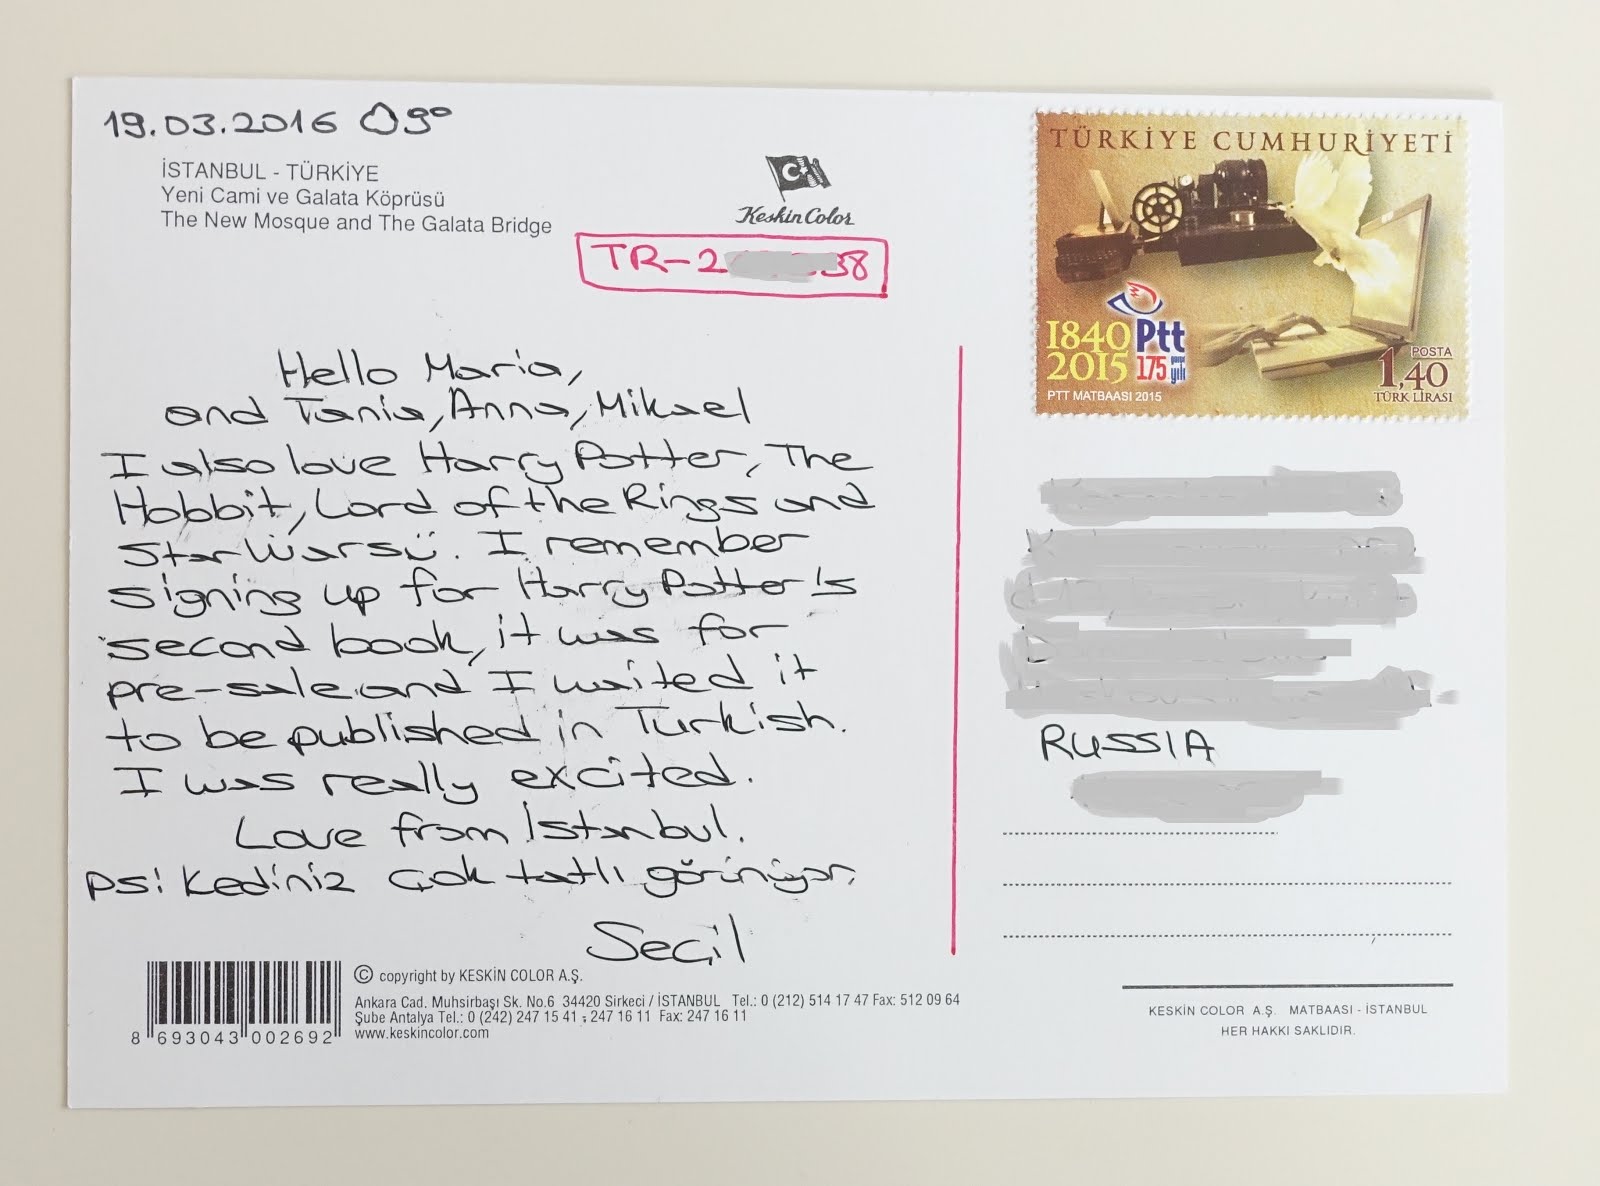 19.03.2016 9°
İSTANBUL - TÜRKİYE
Yeni Cami ve Galata Köprüsü
The New Mosque and The Galata Bridge
Keskin Color
TR-2 38
TÜRKİYE CUMHURİYETİ
1840
2015
Ptt
175 yılı
PTT MATBAASI 2015
POSTA
1,40
TÜRK LİRASI
Hello Maria,
and Tania, Anna, Mikael
I also love Harry Potter, The
Hobbit, Lord of the Rings and
Star Wars ü. I remember
signing up for Harry Potter's
second book, it was for
pre-sale and I waited it
to be published in Turkish.
I was really excited.
Love from İstanbul.
ps: Kediniz çok tatlı görünüyor.
Seçil
RUSSIA
8 693043 002692
© copyright by KESKİN COLOR A.Ş.
Ankara Cad. Muhsirbaşı Sk. No.6 34420 Sirkeci / İSTANBUL Tel.: 0 (212) 514 17 47 Fax: 512 09 64
Şube Antalya Tel.: 0 (242) 247 15 41 - 247 16 11 Fax: 247 16 11
www.keskincolor.com
KESKİN COLOR A.Ş. MATBAASI - İSTANBUL
HER HAKKI SAKLIDIR.